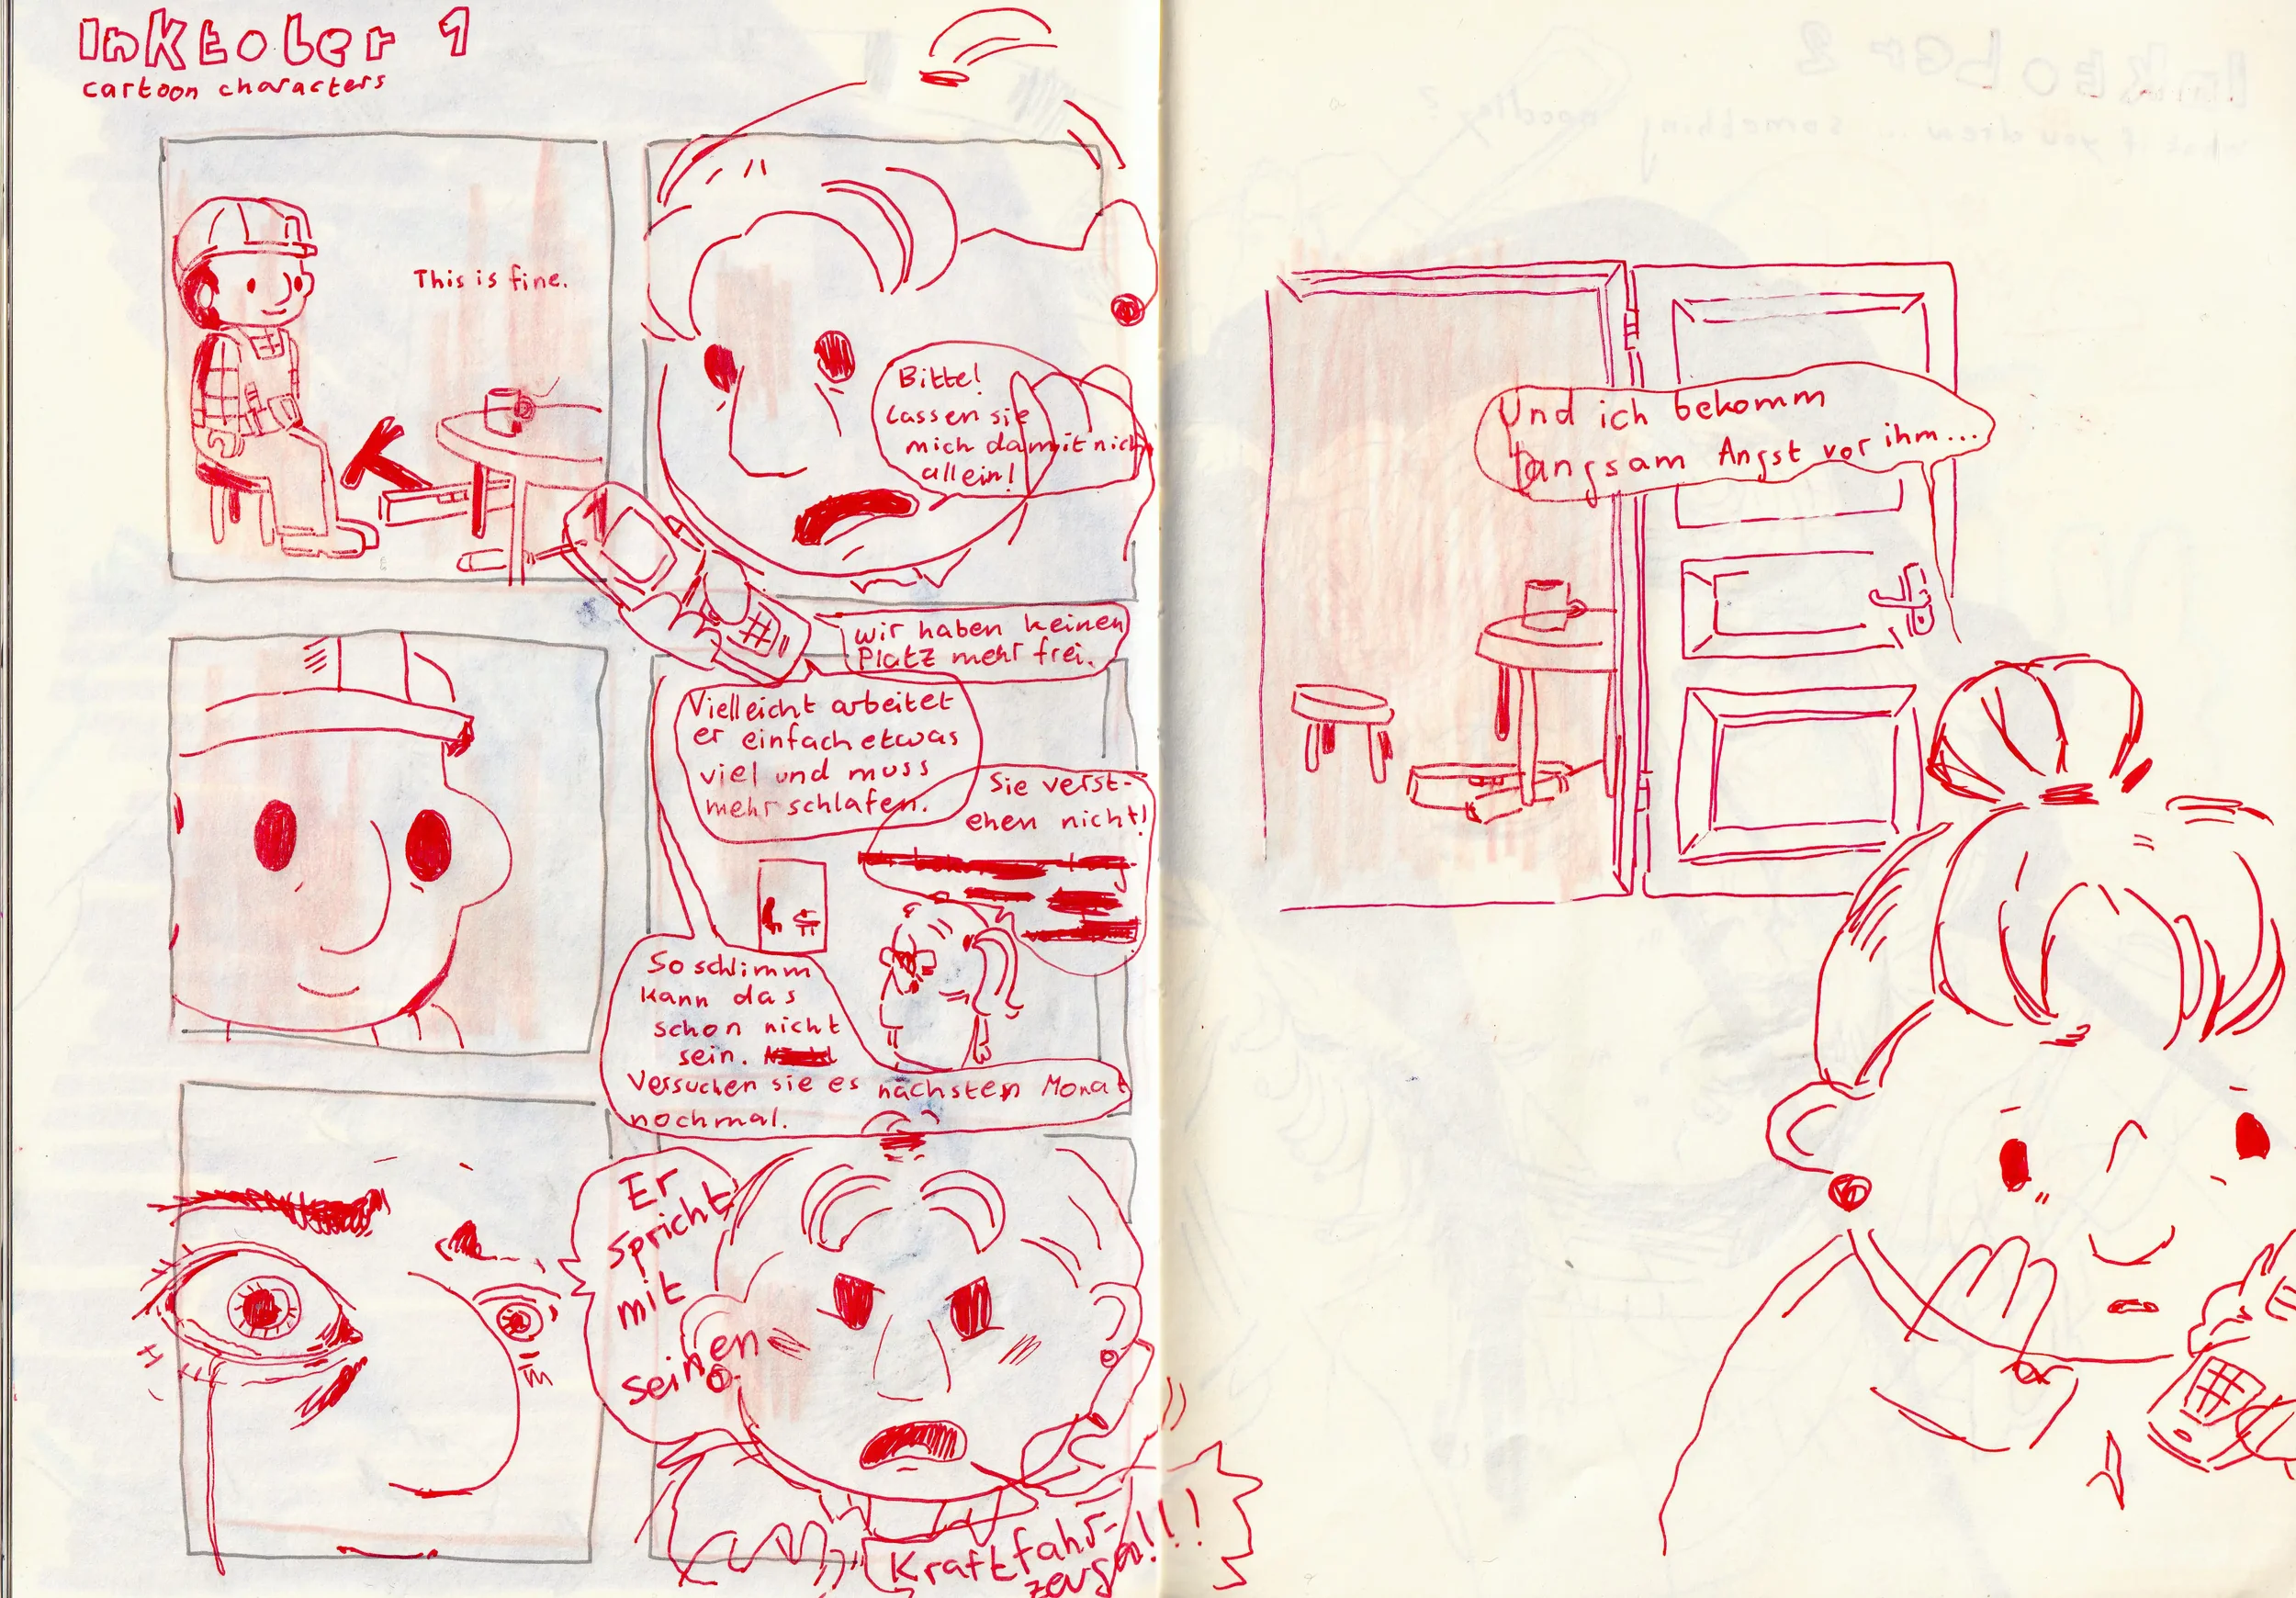 Inktober 1
cartoon characters
This is fine.
Bitte!
Lassen sie
mich damit nich
allein!
wir haben keinen
Platz mehr frei.
Vielleicht arbeitet
er einfach etwas
viel und muss
mehr schlafen.
Sie verst-
ehen nicht!
So schlimm
kann das
schon nicht
sein.
Versuchen sie es nächsten Monat
nochmal.
Er
spricht
mit
seinen
Kraftfahr-
zeugen!!!!
Und ich bekomm
langsam Angst vor ihm...
Inktober 2
what if you drew something noodley?